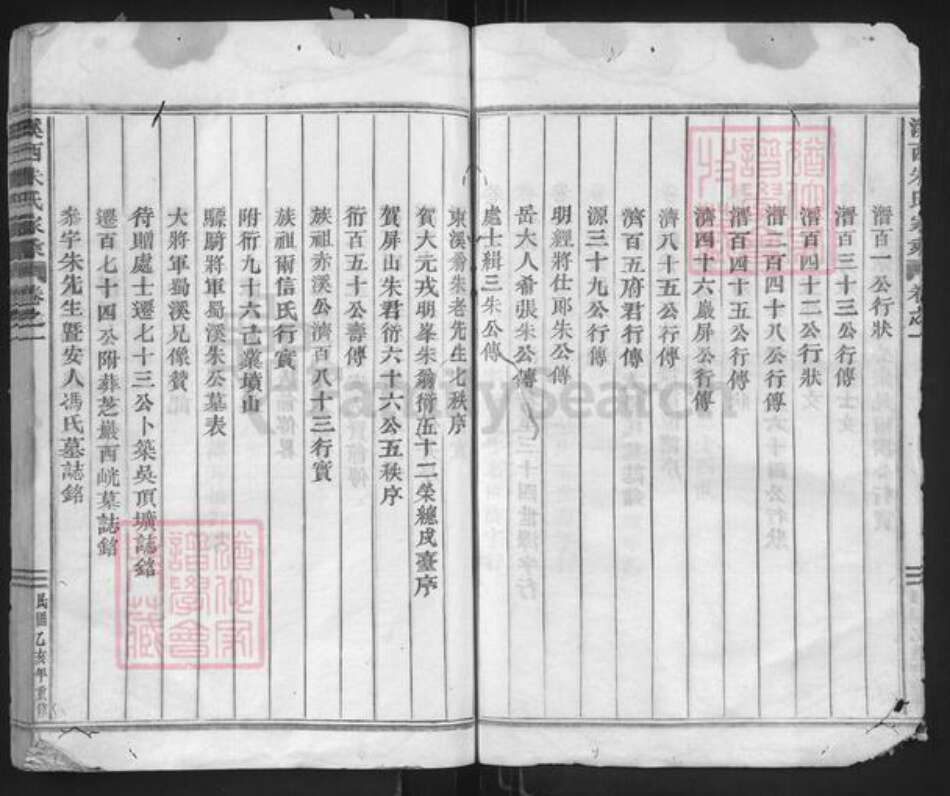 溪西朱氏家乘 卷之一
潛百一公行狀
潛百三十三公行傳
潛百四十二公行狀
潛二百四十八公行傳
潛百四十五公行傳
濟四十六巖屏公行傳
濟八十五公行傳
濟百五府君行傳
源三十九公行傳
明經將仕郎朱公傳
岳大人希張朱公傳
處士緝三朱公傳
東溪翁朱老先生七秩序
賀大元戎明峯朱翁衍五十二榮總戎臺序
賀屏山朱君衍六十六公五秩序
衍百五十公壽傳
族祖赤溪公濟百八十三行實
族祖爾信氏行實
附衍九十六己業墳山
驃騎將軍蜀溪朱公墓表
大將軍蜀溪兄像贊
待贈處士遷七十三公卜築吳頂壙誌銘
遷百七十四公附葬芝巖西峣墓誌銘
參宇朱先生暨安人馮氏墓誌銘
溪西朱氏家乘 卷之一
民國乙亥年重修
猶他家譜學會藏
猶他家譜學會藏
FamilySearch